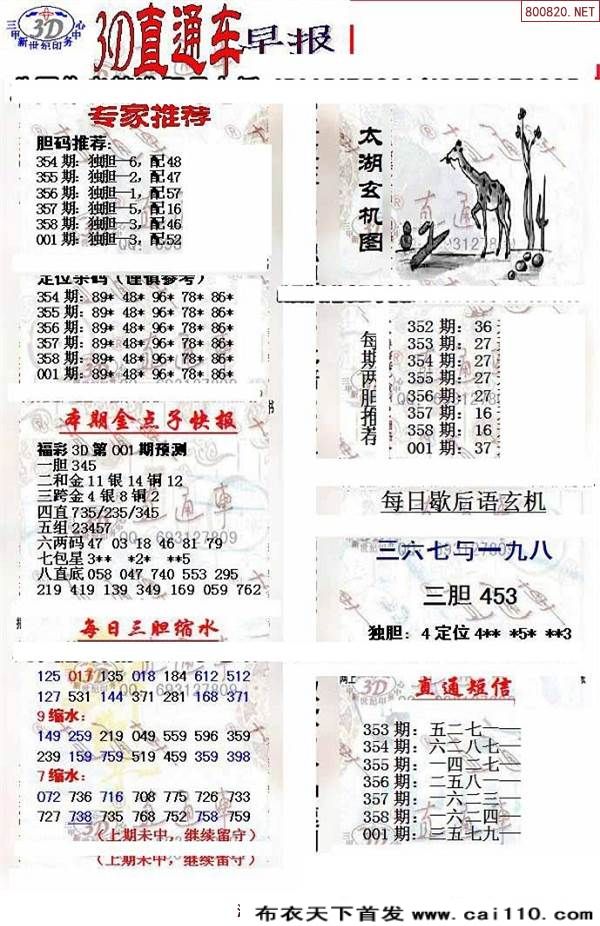 800820.NET
三甲
3D
中心
新世纪印务
3D直通车 早报
专家推荐
胆码推荐:
354 期: 独胆—6, 配48
355 期: 独胆—2, 配47
356 期: 独胆—1, 配57
357 期: 独胆—5, 配16
358 期: 独胆—3, 配46
001 期: 独胆—3, 配52
定位杀码(谨慎参考)
354 期: 89* 48* 96* 78* 86*
355 期: 89* 48* 96* 78* 86*
356 期: 89* 48* 96* 78* 86*
357 期: 89* 48* 96* 78* 86*
358 期: 89* 48* 96* 78* 86*
001 期: 89* 48* 96* 78* 86*
本期金点子快报
福彩 3D 第 001 期预测
一胆 345
二和金 11 银 14 铜 12
三跨金 4 银 8 铜 2
四直 735/235/345
五组 23457
六两码 47 03 18 46 81 79
七包星 3** *2* **5
八直底 058 047 740 553 295
219 419 139 349 169 059 762
每日三胆缩水
125 017 135 018 184 612 512
127 531 144 371 281 168 371
9 缩水:
149 259 219 049 559 596 359
239 159 759 519 459 359 398
7 缩水:
072 736 716 708 775 726 733
727 738 735 768 752 758 759
(上期未中, 继续留守)
(上期未中, 继续留守)
太湖玄机图
每期两胆推荐
352 期: 36
353 期: 27
354 期: 27
355 期: 27
356 期: 27
357 期: 16
358 期: 16
001 期: 37
每日歇后语玄机
三六七与一九八
三胆 453
独胆: 4 定位 4** *5* **3
直通短信
353 期: 五二七——
354 期: 六二八七—
355 期: 一四二七—
356 期: 二五八——
357 期: 一六二三—
358 期: 一六二四—
001 期: 三五七九—
布衣天下首发 www.cai110.com